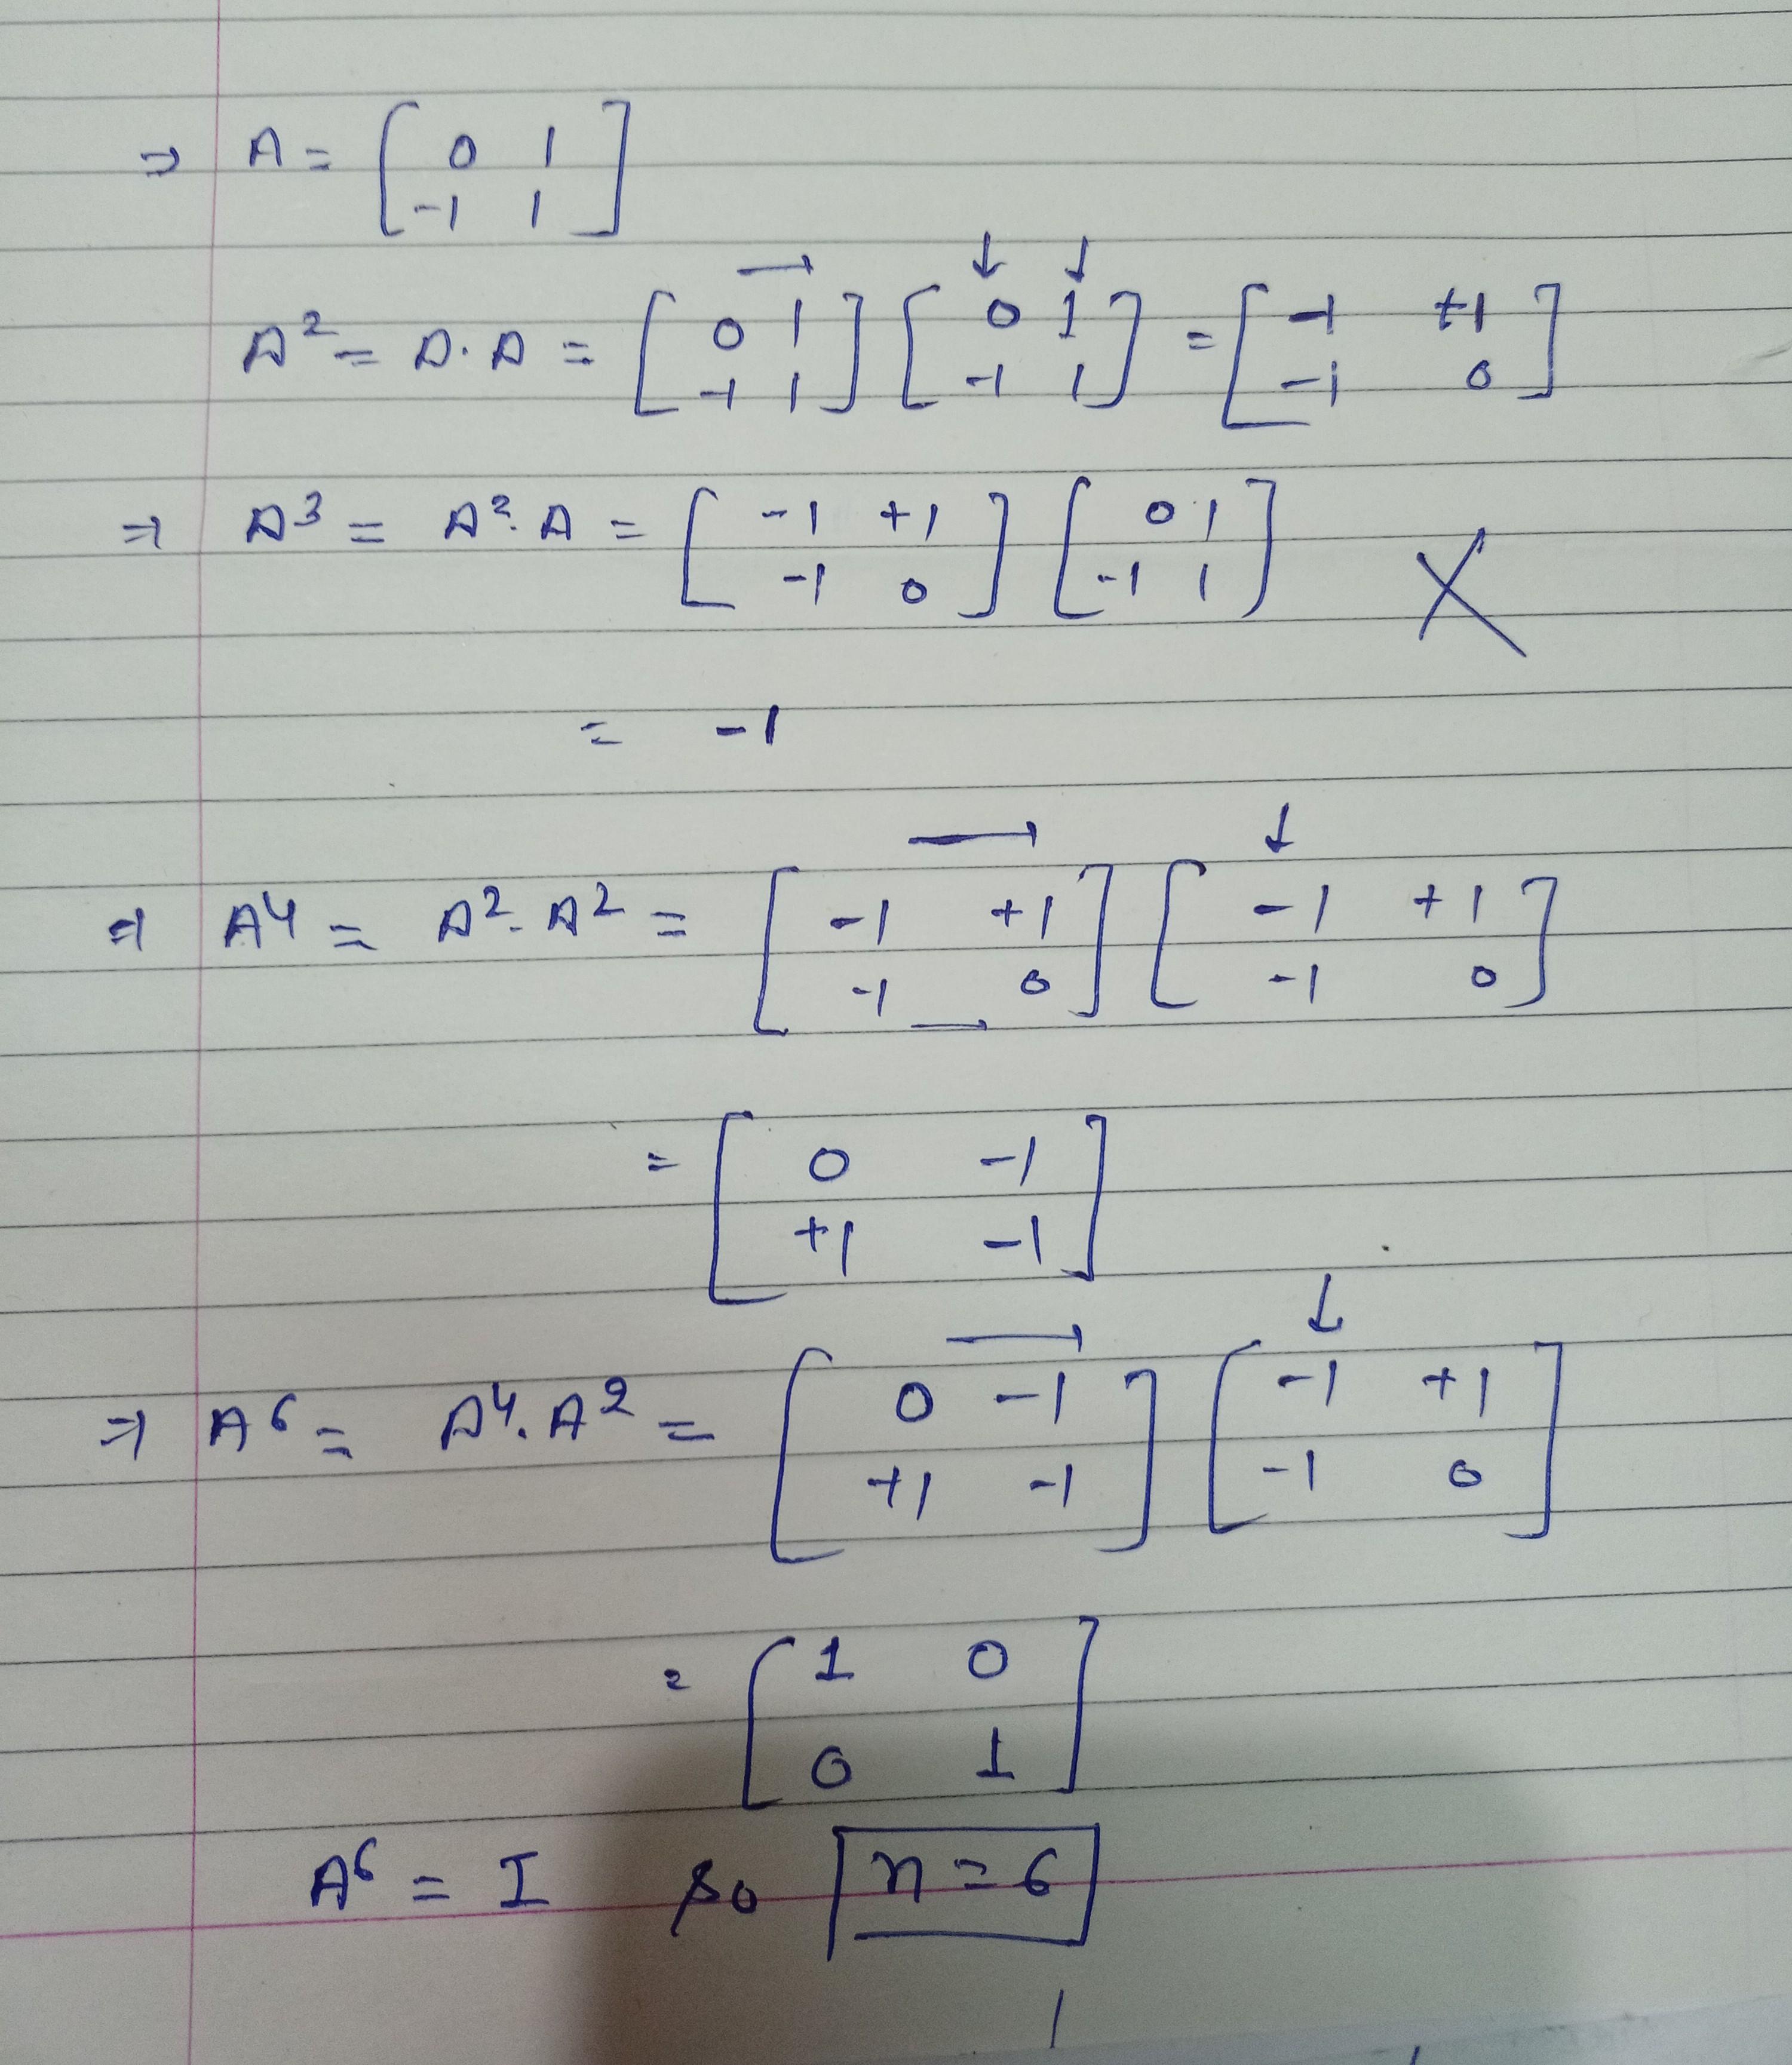 ⇒ A = [ 0 1 ; -1 1 ]
A² = A·A = [ 0 1 ; -1 1 ] [ 0 1 ; -1 1 ] = [ -1 +1 ; -1 0 ]
⇒ A³ = A²·A = [ -1 +1 ; -1 0 ] [ 0 1 ; -1 1 ] X
= -1
⇒ A⁴ = A²·A² = [ -1 +1 ; -1 0 ] [ -1 +1 ; -1 0 ]
= [ 0 -1 ; +1 -1 ]
⇒ A⁶ = A⁴·A² = [ 0 -1 ; +1 -1 ] [ -1 +1 ; -1 0 ]
= [ 1 0 ; 0 1 ]
A⁶ = I so n = 6